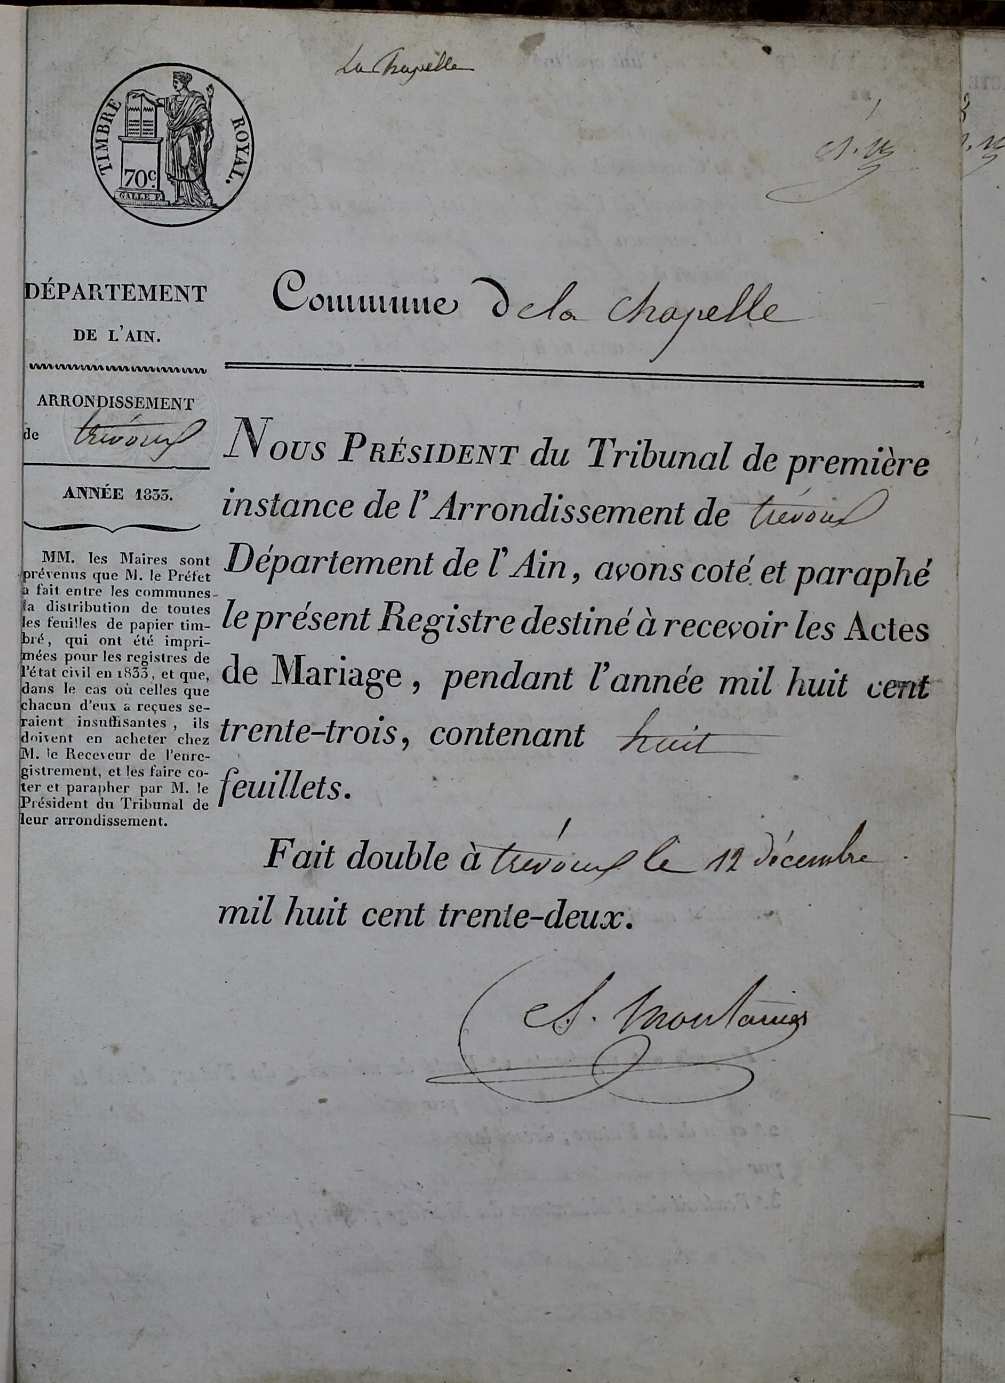 La Chapelle
TIMBRE ROYAL.
70c.
GALLE F.
DÉPARTEMENT
DE L'AIN.
ARRONDISSEMENT
de trévoux
ANNÉE 1833.
MM. les Maires sont
prévenus que M. le Préfet
a fait entre les communes
la distribution de toutes
les feuilles de papier tim-
bré, qui ont été impri-
mées pour les registres de
l'état civil en 1833, et que,
dans le cas où celles que
chacun d'eux a reçues se-
raient insuffisantes, ils
doivent en acheter chez
M. le Receveur de l'enre-
gistrement, et les faire co-
ter et parapher par M. le
Président du Tribunal de
leur arrondissement.
Commune De la chapelle
NOUS PRÉSIDENT du Tribunal de première
instance de l'Arrondissement de trévoux
Département de l'Ain, avons coté et paraphé
le présent Registre destiné à recevoir les Actes
de Mariage, pendant l'année mil huit cent
trente-trois, contenant huit
feuillets.
Fait double à trévoux le 12 décembre
mil huit cent trente-deux.